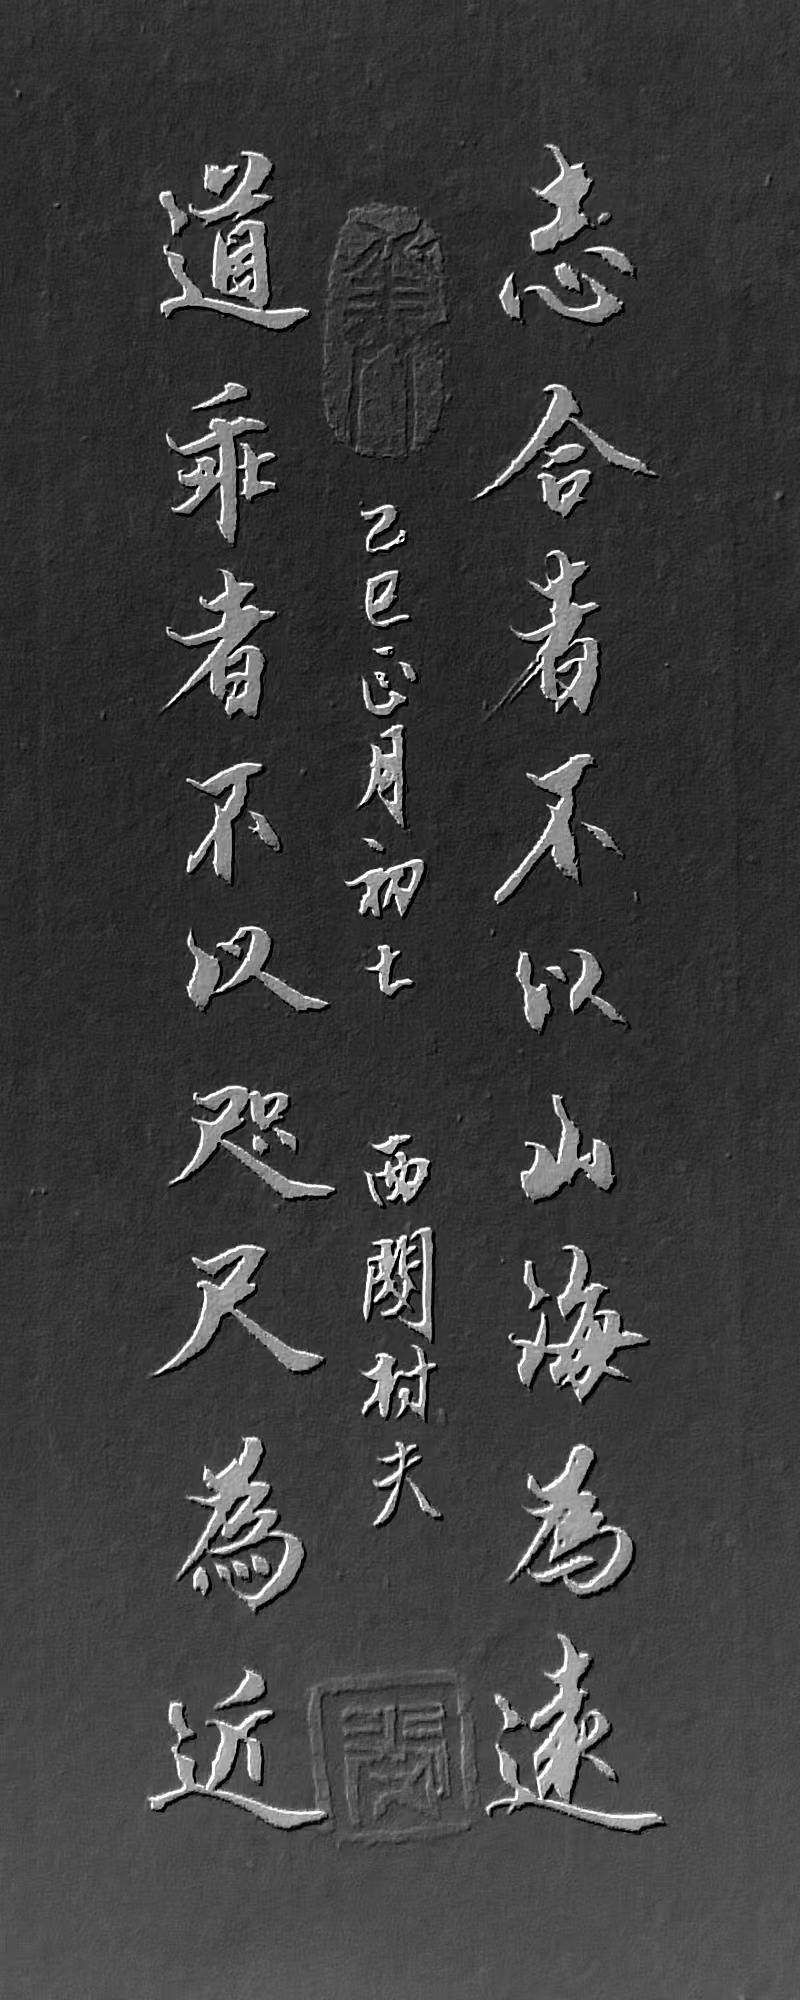 志合者不以山海為遠
道乖者不以咫尺為近
己巳正月初七 西閣村夫